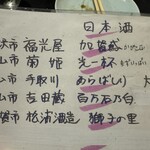 日本酒
沢市 福光屋 加賀鳶
山市 菊姫 先一杯
山市 手取川 あらばしり 大
山市 吉田蔵 百万石乃白
賀市 松浦酒造 獅子の里